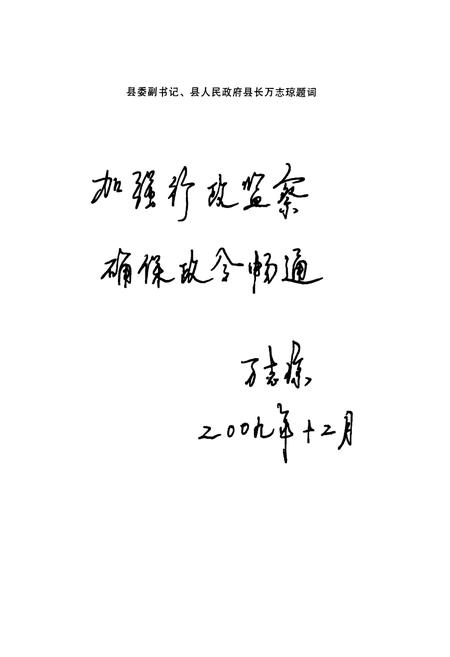 县委副书记、县人民政府县长万志琼题词
加强行政监察
确保政令畅通
万志琼
二00九年十二月